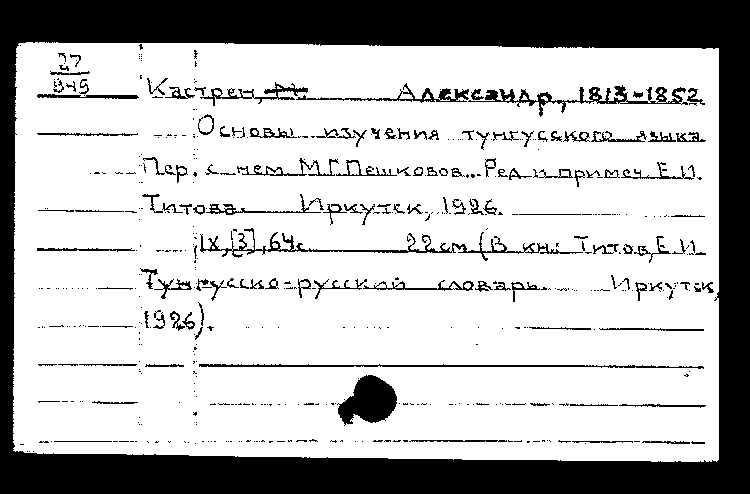 27
945
Кастрен, М. Александр, 1813-1852
Основы изучения тунгусского языка
Пер. с нем. М.Г. Пешковов.. Ред и примеч Е.И.
Титова. Иркутск, 1926.
IX, [3], 64с. 22см (В кн.: Титов, Е.И.
Тунгусско-русский словарь. Иркутск,
1926).